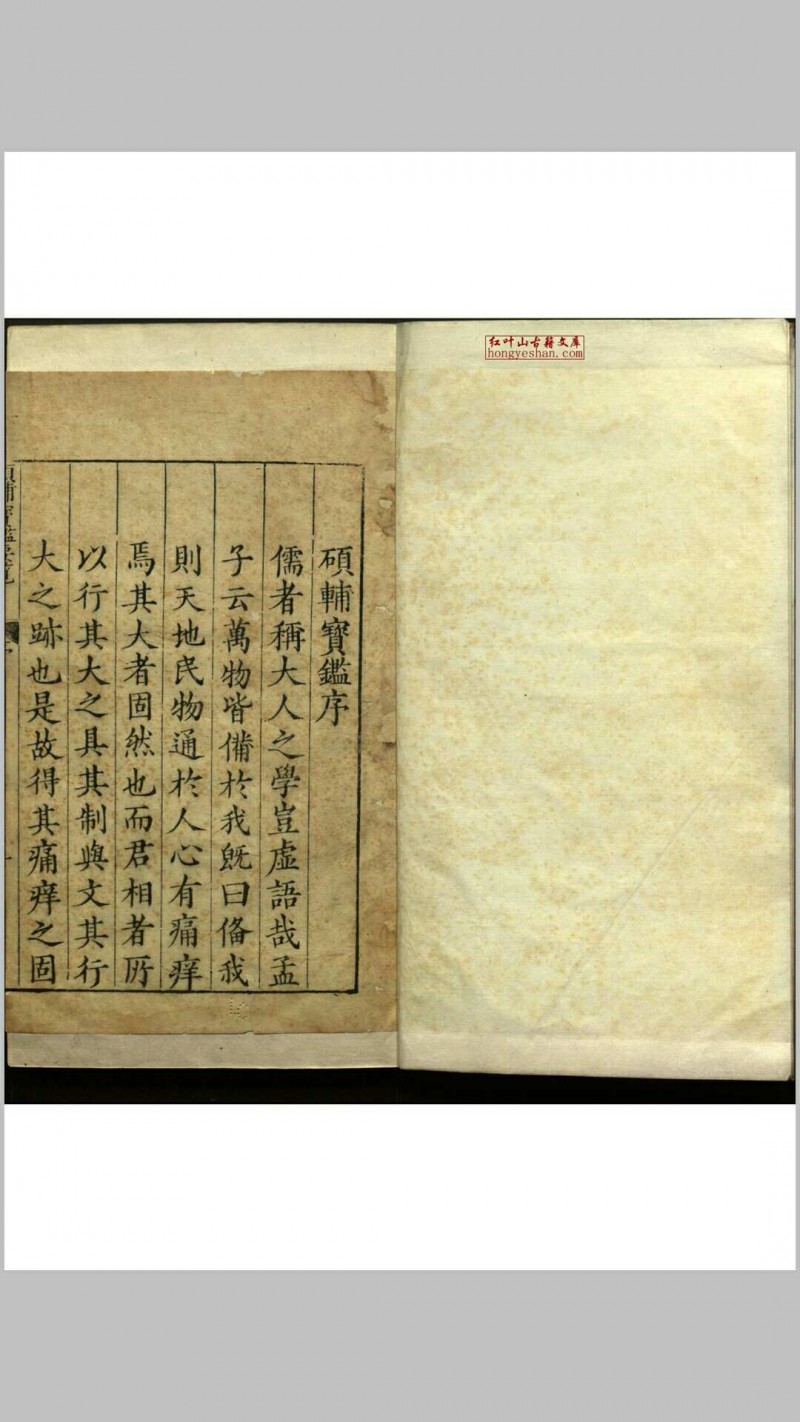 红叶山古籍文库
hongyeshan.com
碩輔寳鑑序
儒者稱大人之學豈虚語哉孟
子云萬物皆備於我既曰俻我
則天地民物通於人心有痛痒
焉其大者固然也而君相者所
以行其大之具其制與文其行
大之跡也是故得其痛痒之固